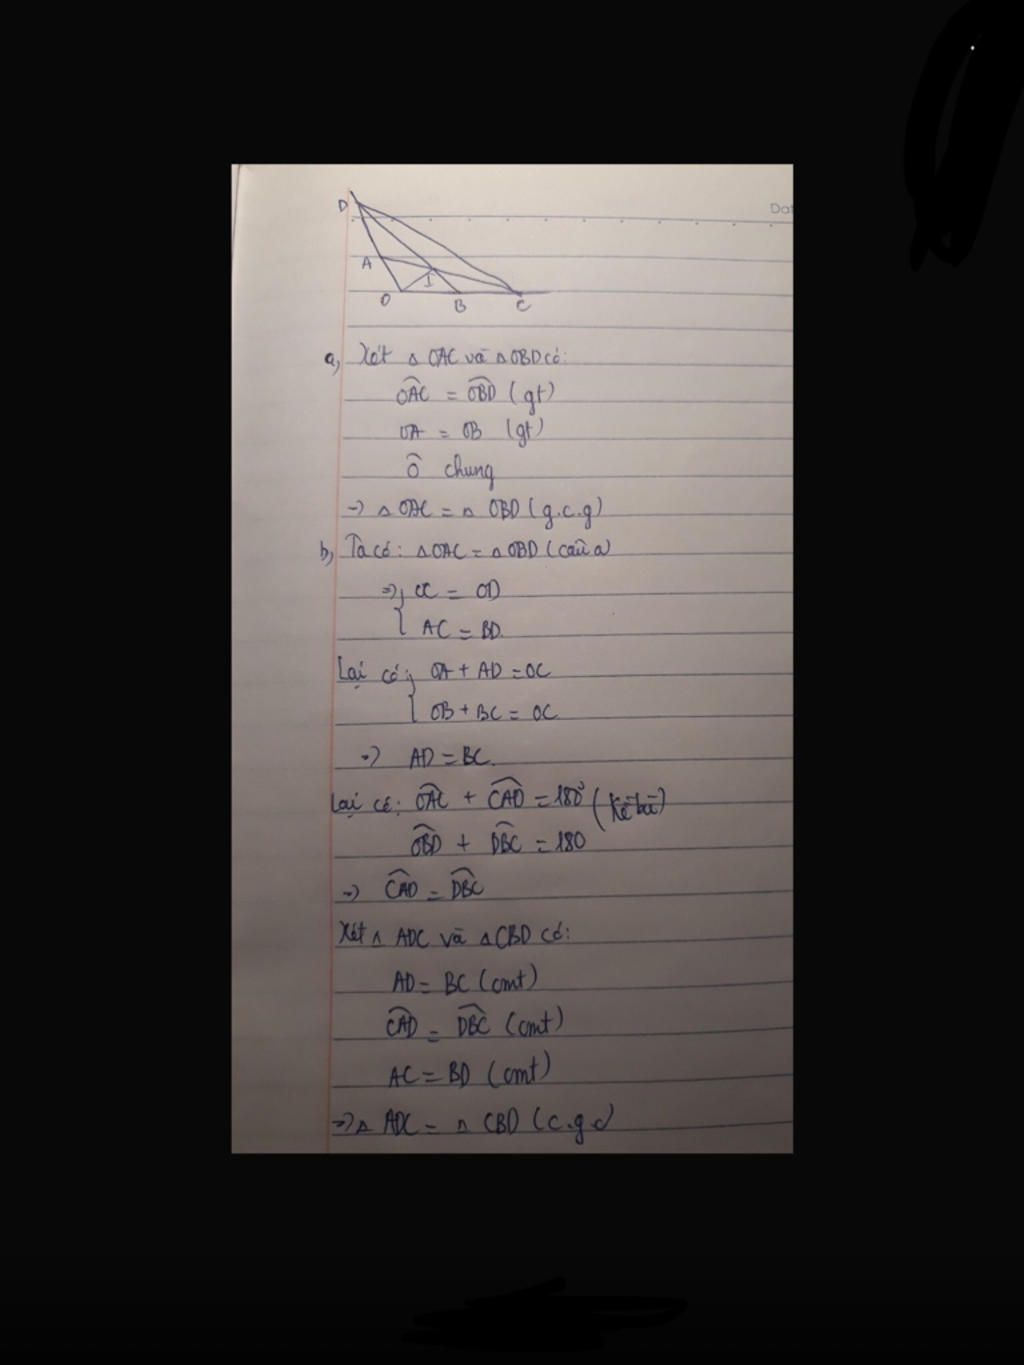 Dat
D
A
I
O B C
a, Xét △ OAC và △ OBD có:
OAC = OBD (gt)
OA = OB (gt)
Ô chung
=> △ OAC = △ OBD (g.c.g)
b, Ta có: △OAC = △OBD (câu a)
=> { OC = OD
AC = BD.
Lại có: { OA + AD = OC
OB + BC = OC
=> AD = BC.
Lại có: OAC + CAD = 180° (kề bù)
OBD + DBC = 180
=> CAD = DBC
Xét △ ADC và △ CBD có:
AD = BC (cmt)
CAD = DBC (cmt)
AC = BD (cmt)
=> △ ADC = △ CBD (c.g.c)